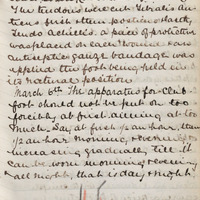 The tendons were cut Tibialis an
ticus first then posticus & last,
Tendo Achilles. a piece of protective
was placed on each wound & an
antiseptic gauze bandage was
applied the foot being held in
its natural position.
March 6th The apparatus for Club
foot should not be put on too
forcibly at first aiming at too
much. Say at first 1/2 an hour, then
1/2 an hour morning & evening
increasing gradually till it
can be worn morning & evening
& all night, that is day & night.